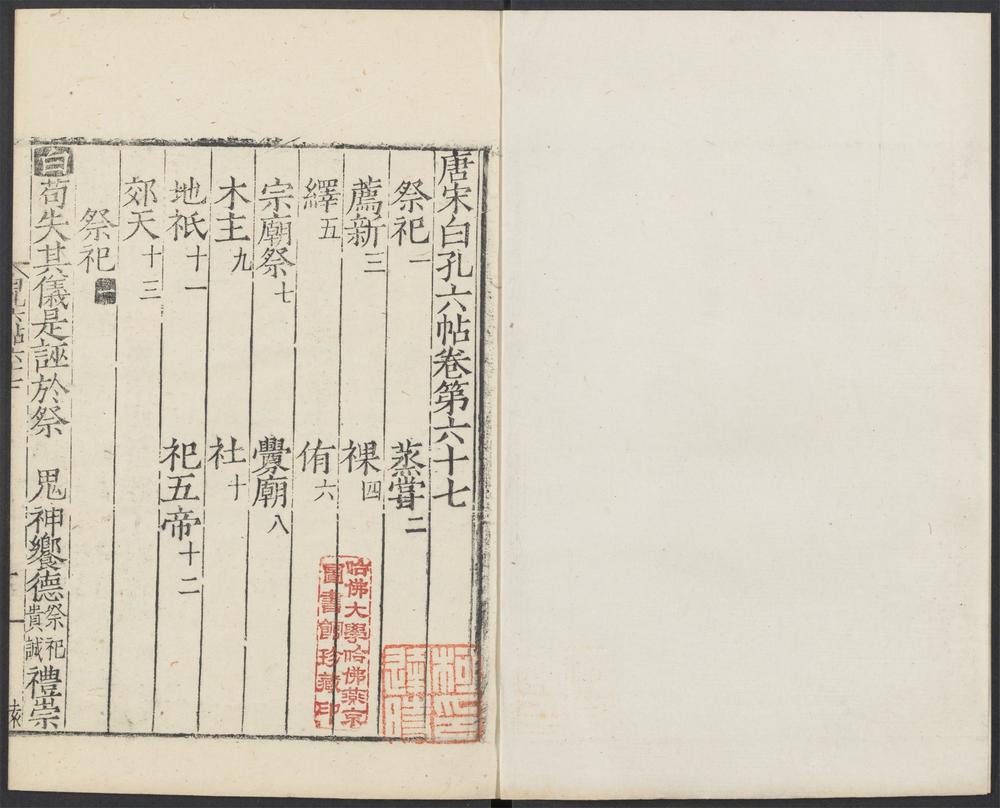 唐宋白孔六帖卷第六十七
祭祀一 蒸嘗二
薦新三 祼四
繹五 侑六
宗廟祭七 釁廟八
木主九 社十
地祇十一 祀五帝十二
郊天十三
祭祀一
白 苟失其儀是誣於祭 鬼神饗德祭祀貴誠禮崇
哈佛大學哈佛燕京
圖書館珍藏印